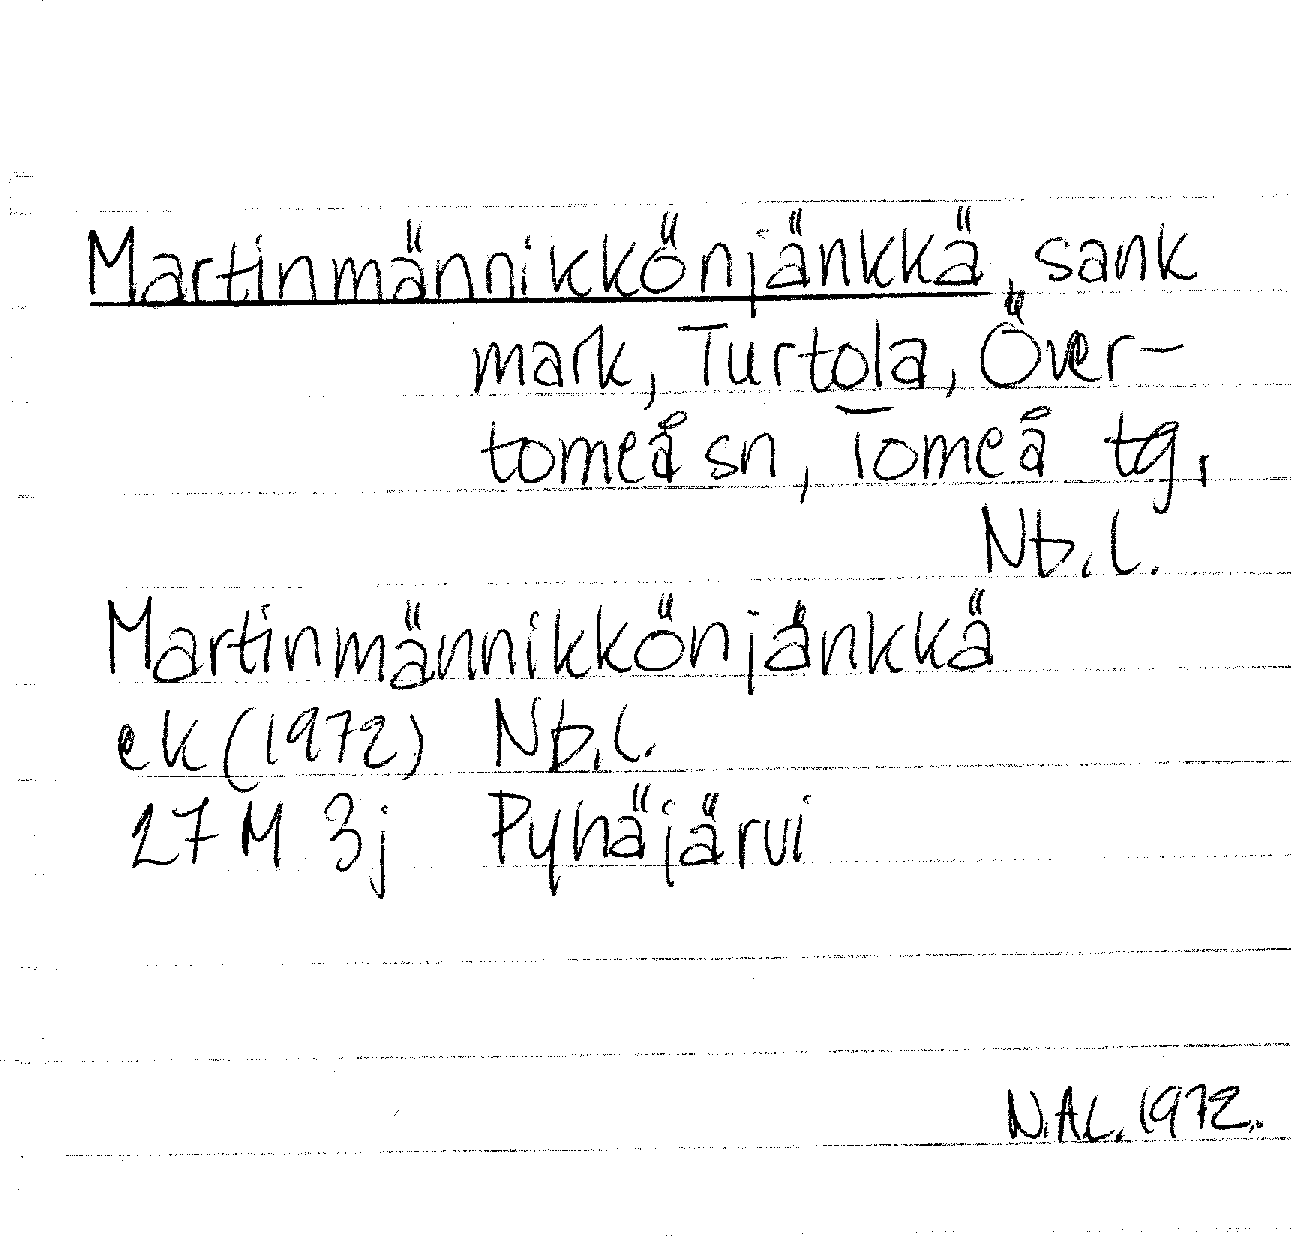 Martinmännikkönjänkkä, sank
mark, Turtola, Över-
torneå sn, Torneå tg,
Nb. l.
Martinmännikkönjänkkä
ek (1972) Nb. l.
27 M 3j Pyhäjärvi
N.AL. 1972.